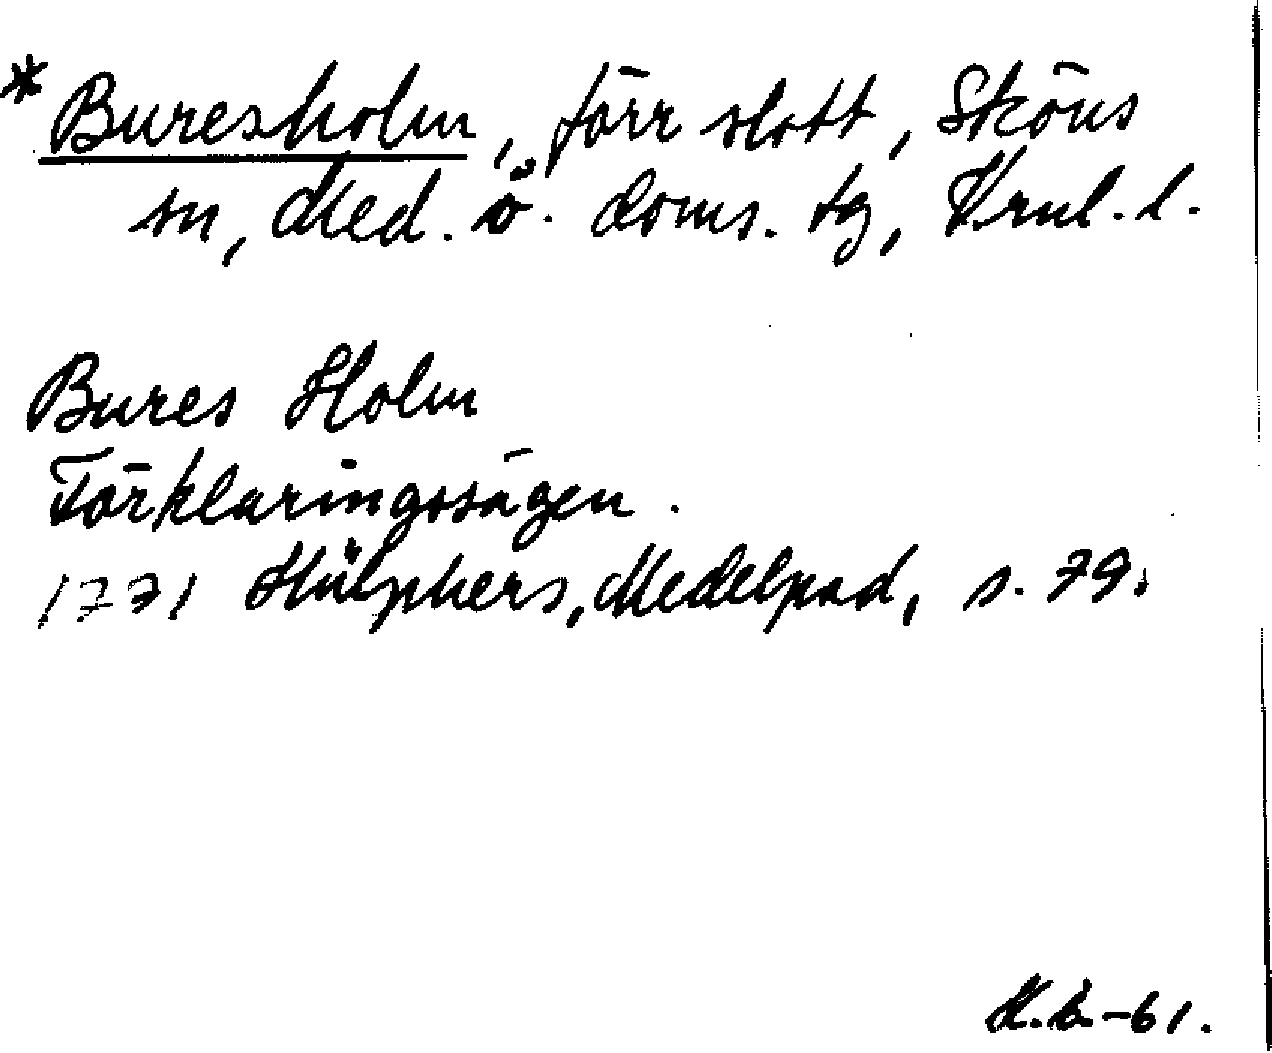 * Buresholm, förr slott, Sköns
sn, Med. ö. doms. tg, Vrnl. l.
Bures Holm
Förklaringssägen.
1771 Hülphers, Medelpad, s. 79.
-61.